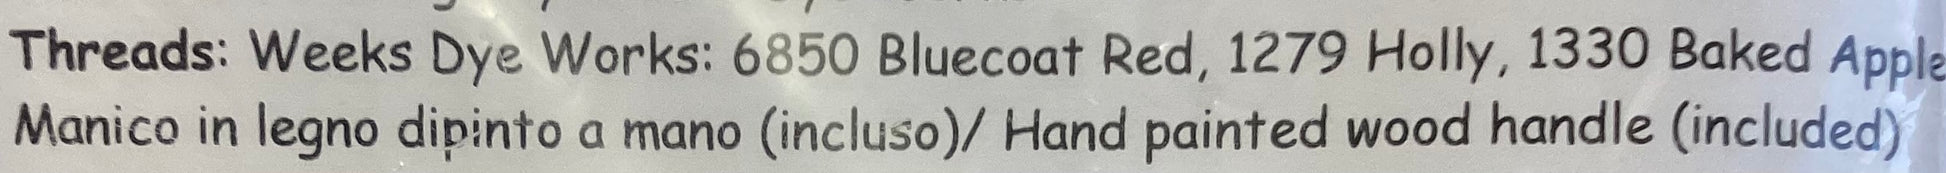 Threads: Weeks Dye Works: 6850 Bluecoat Red, 1279 Holly, 1330 Baked Apple
Manico in legno dipinto a mano (incluso)/ Hand painted wood handle (included)